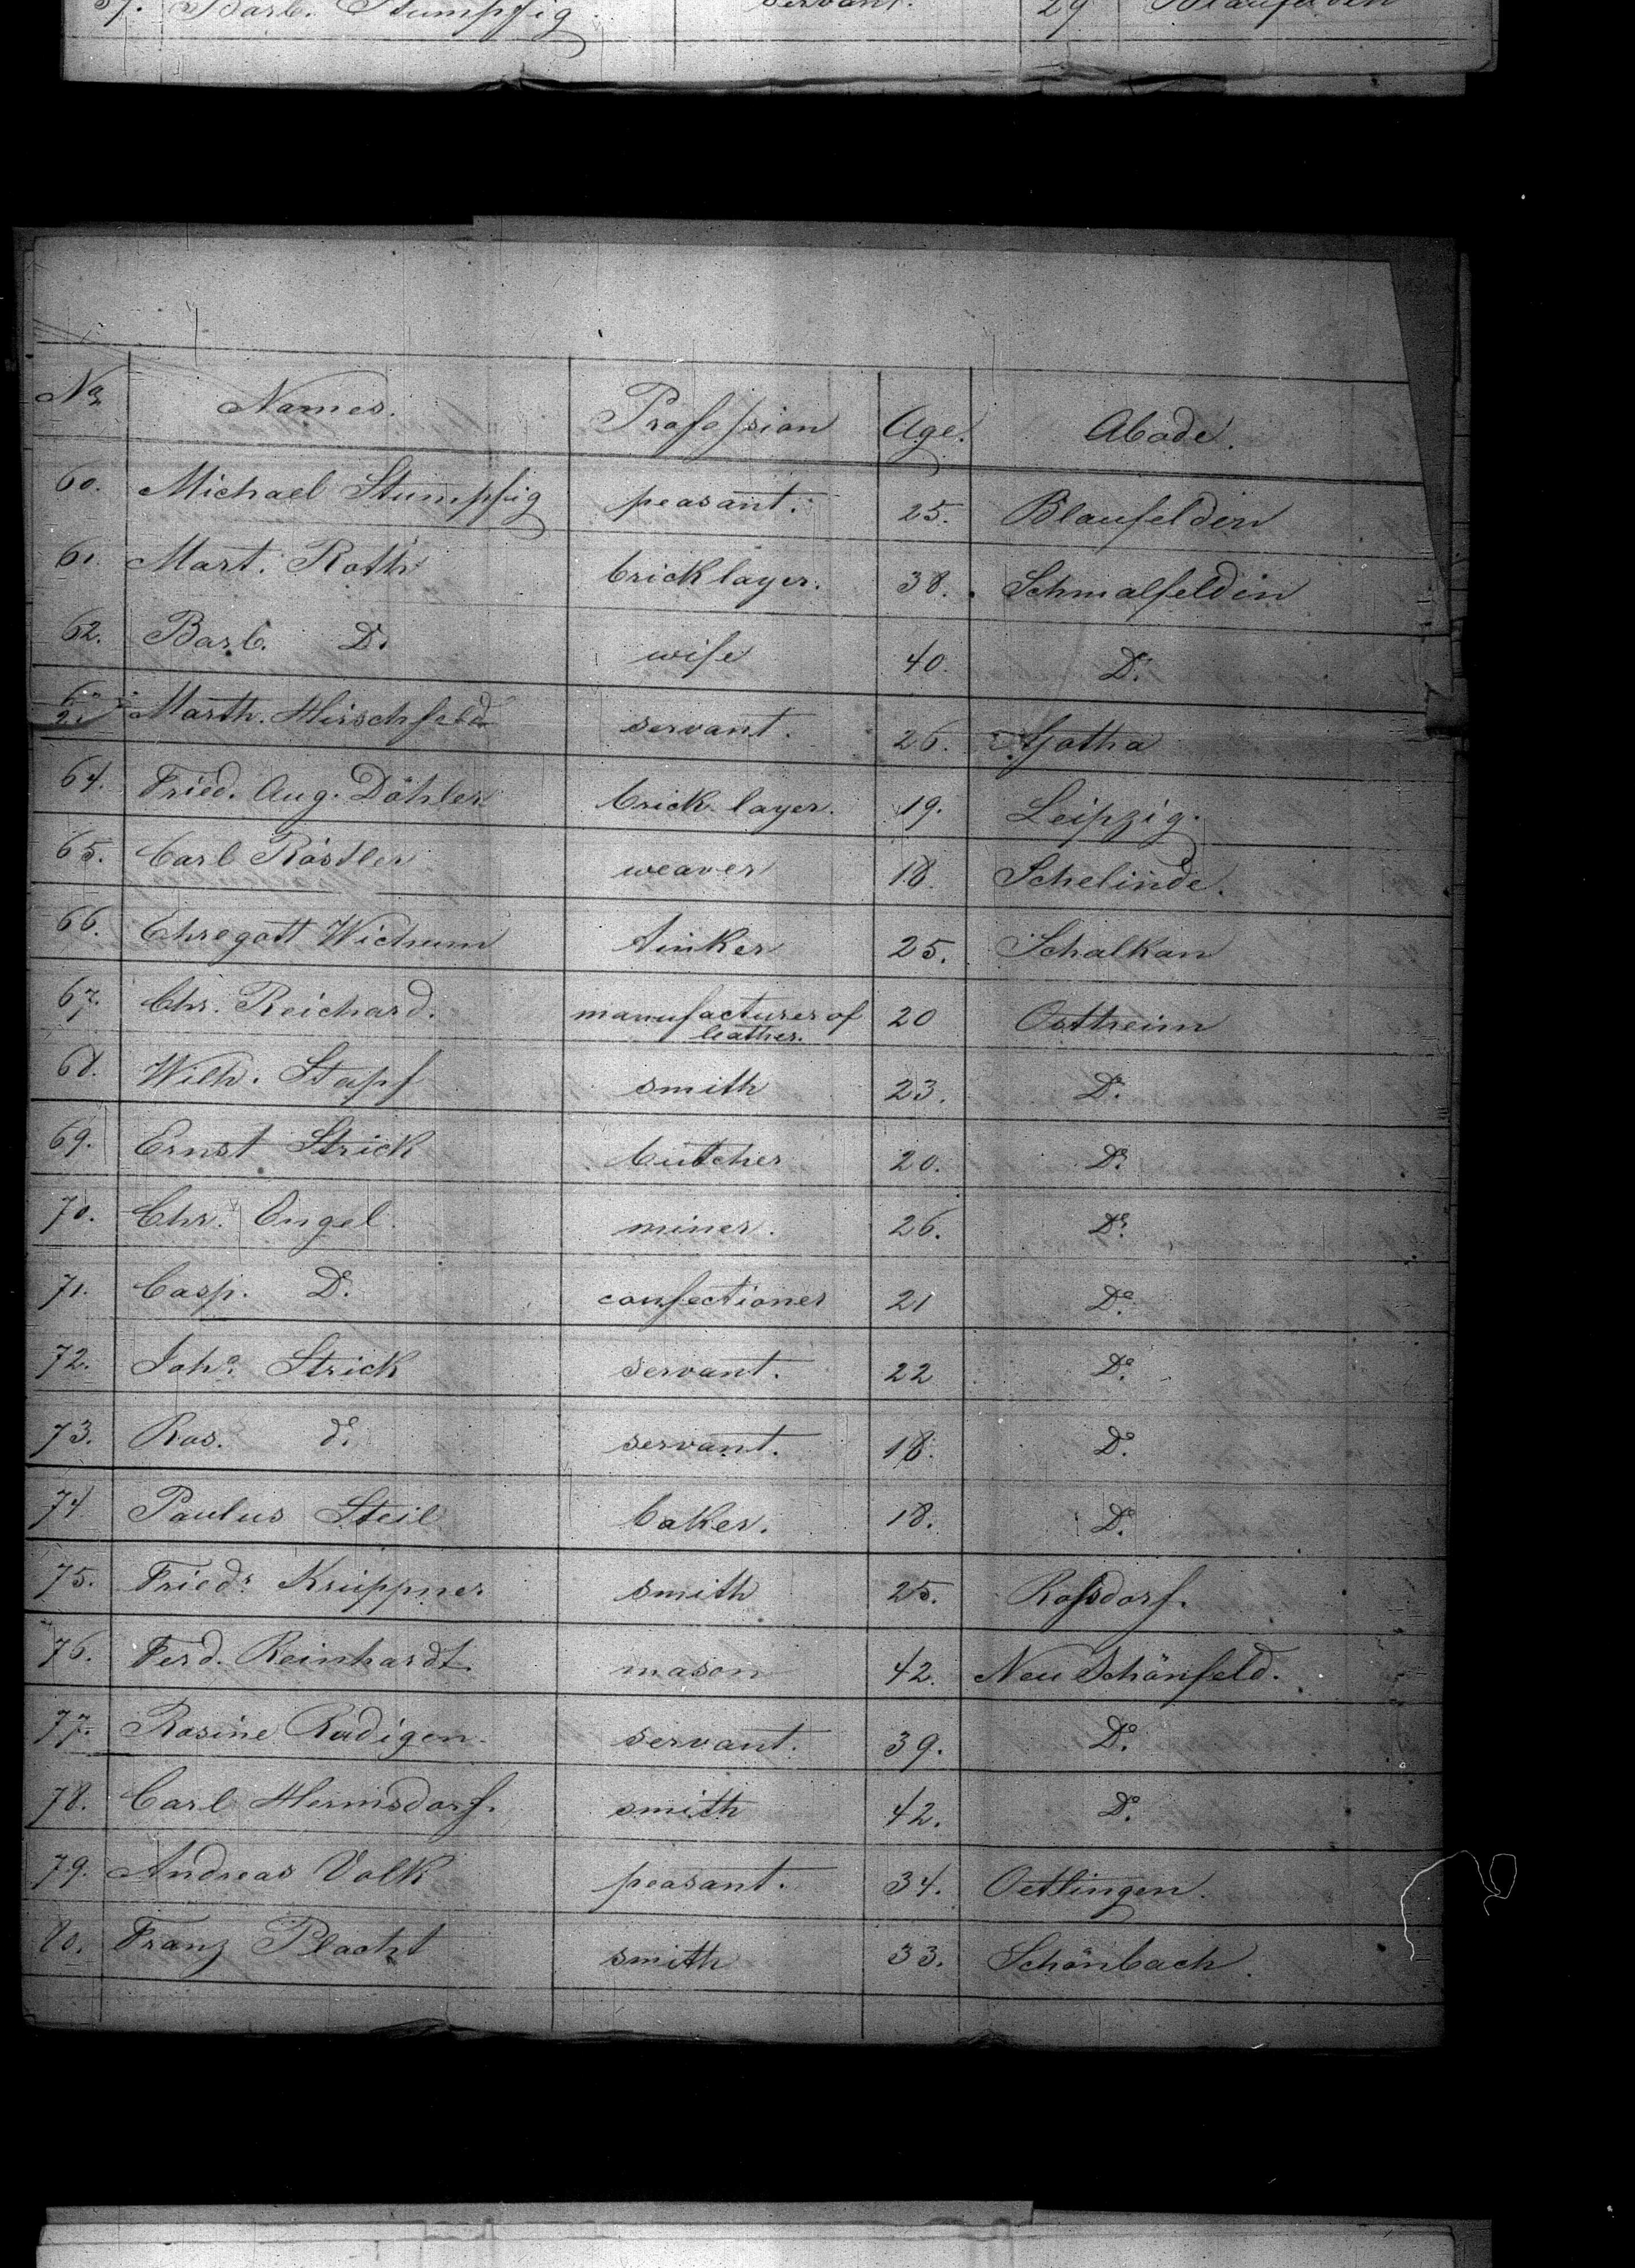 59. Barb. Stumpfig servant. 29 Blaufelden
No. Names. Profession Age. Abode.
60. Michael Stumpfig peasant. 25. Blaufelden
61. Mart. Roth bricklayer. 38. Schmalfelden
62. Barb. Do. wife 40. Do.
Marth. Hirschfeld servant. 26. Gotha
64. Fried. Aug. Döhler brick layer. 19. Leipzig.
65. Carl Röstler weaver 18. Schelinde.
66. Ehregott Wichum tinker 25. Schalkau
67. Chr. Reichard. manufacturer of 20 Ostheim
leather.
68. Wilh. Stapf smith 23. Do.
69. Ernst Strick butcher 20. Do.
70. Chr. Engel. miner. 26. Do.
71. Casp. Do. confectioner 21 Do.
72. Joho. Strick servant. 22 Do.
73. Ros. do. servant. 18. Do.
74. Paulus Steil baker. 18. Do.
75. Friedr. Krüppner smith 25. Rossdorf.
76. Ferd. Reinhardt. mason 42. Neu Schönfeld.
77. Rosine Rüdigen. servant. 39. Do.
78. Carl Hermsdorf. smith 42. Do.
79. Andreas Volk peasant. 34. Oetlingen.
80. Franz Placht smith 33. Schönbach.